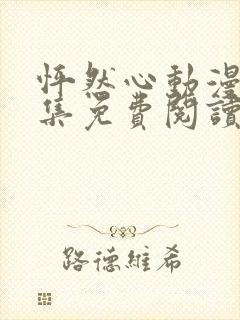 怦然心動漫
集免費閱讀
路德維希